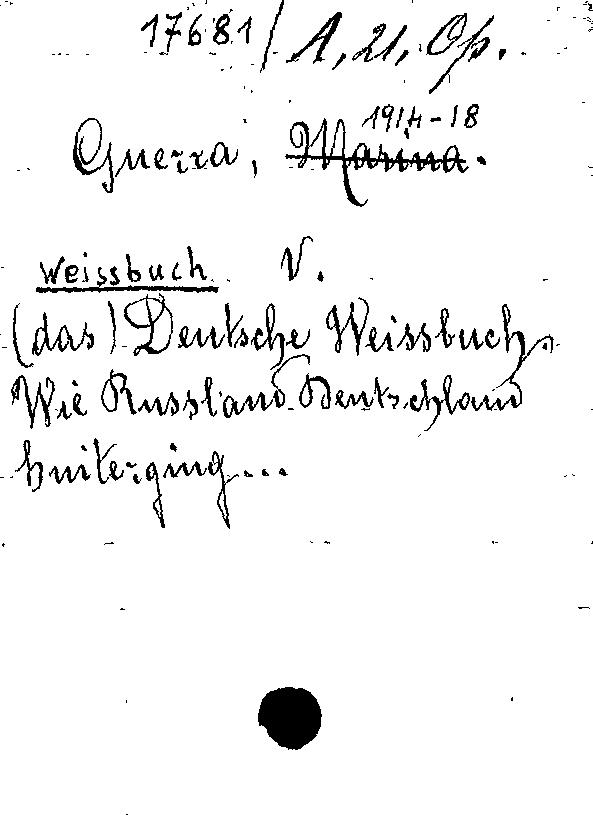 17681/A, 21, Op.
1914-18
Guerra, Marina.
Weissbuch V.
(das) Deutsche Weissbuch.
Wie Russland Deutschland
huiterging...